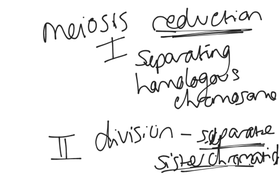 meiosis reduction
I separating
homologous
chromosome
II division - separate
sister chromatid